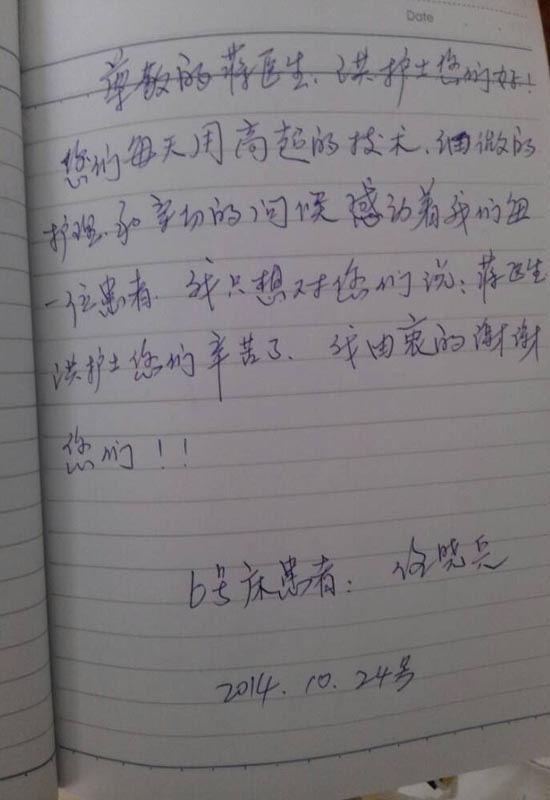 Date
尊敬的蒋医生、洪护士您们好!
您们每天用高超的技术、细微的
护理、和亲切的问候感动着我们每
一位患者. 我只想对您们说：蒋医生
洪护士您们辛苦了、我由衷的谢谢
您们！！
6号床患者： 晓兵
2014.10.24号